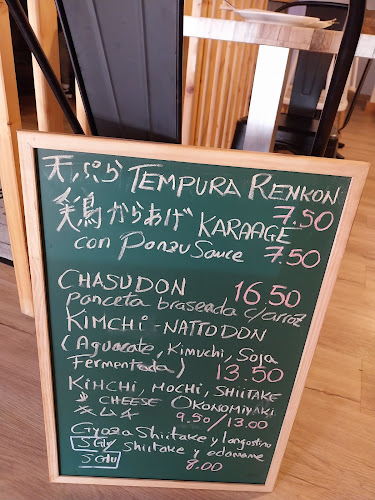 天ぷら TEMPURA RENKON
7.50
鶏からあげ KARAAGE
con Ponzu Sauce 7.50
CHASUDON 16.50
panceta braseada c/arroz
KIMCHI-NATTODON
(Aguacate, Kimuchi, Soja
Fermentada) 13.50
KIMCHI, MOCHI, SHIITAKE
y CHEESE OKONOMIYAKI
キムチ 9.50/13.00
Gyoza Shiitake y langostino
Shiitake y edamame
8.00